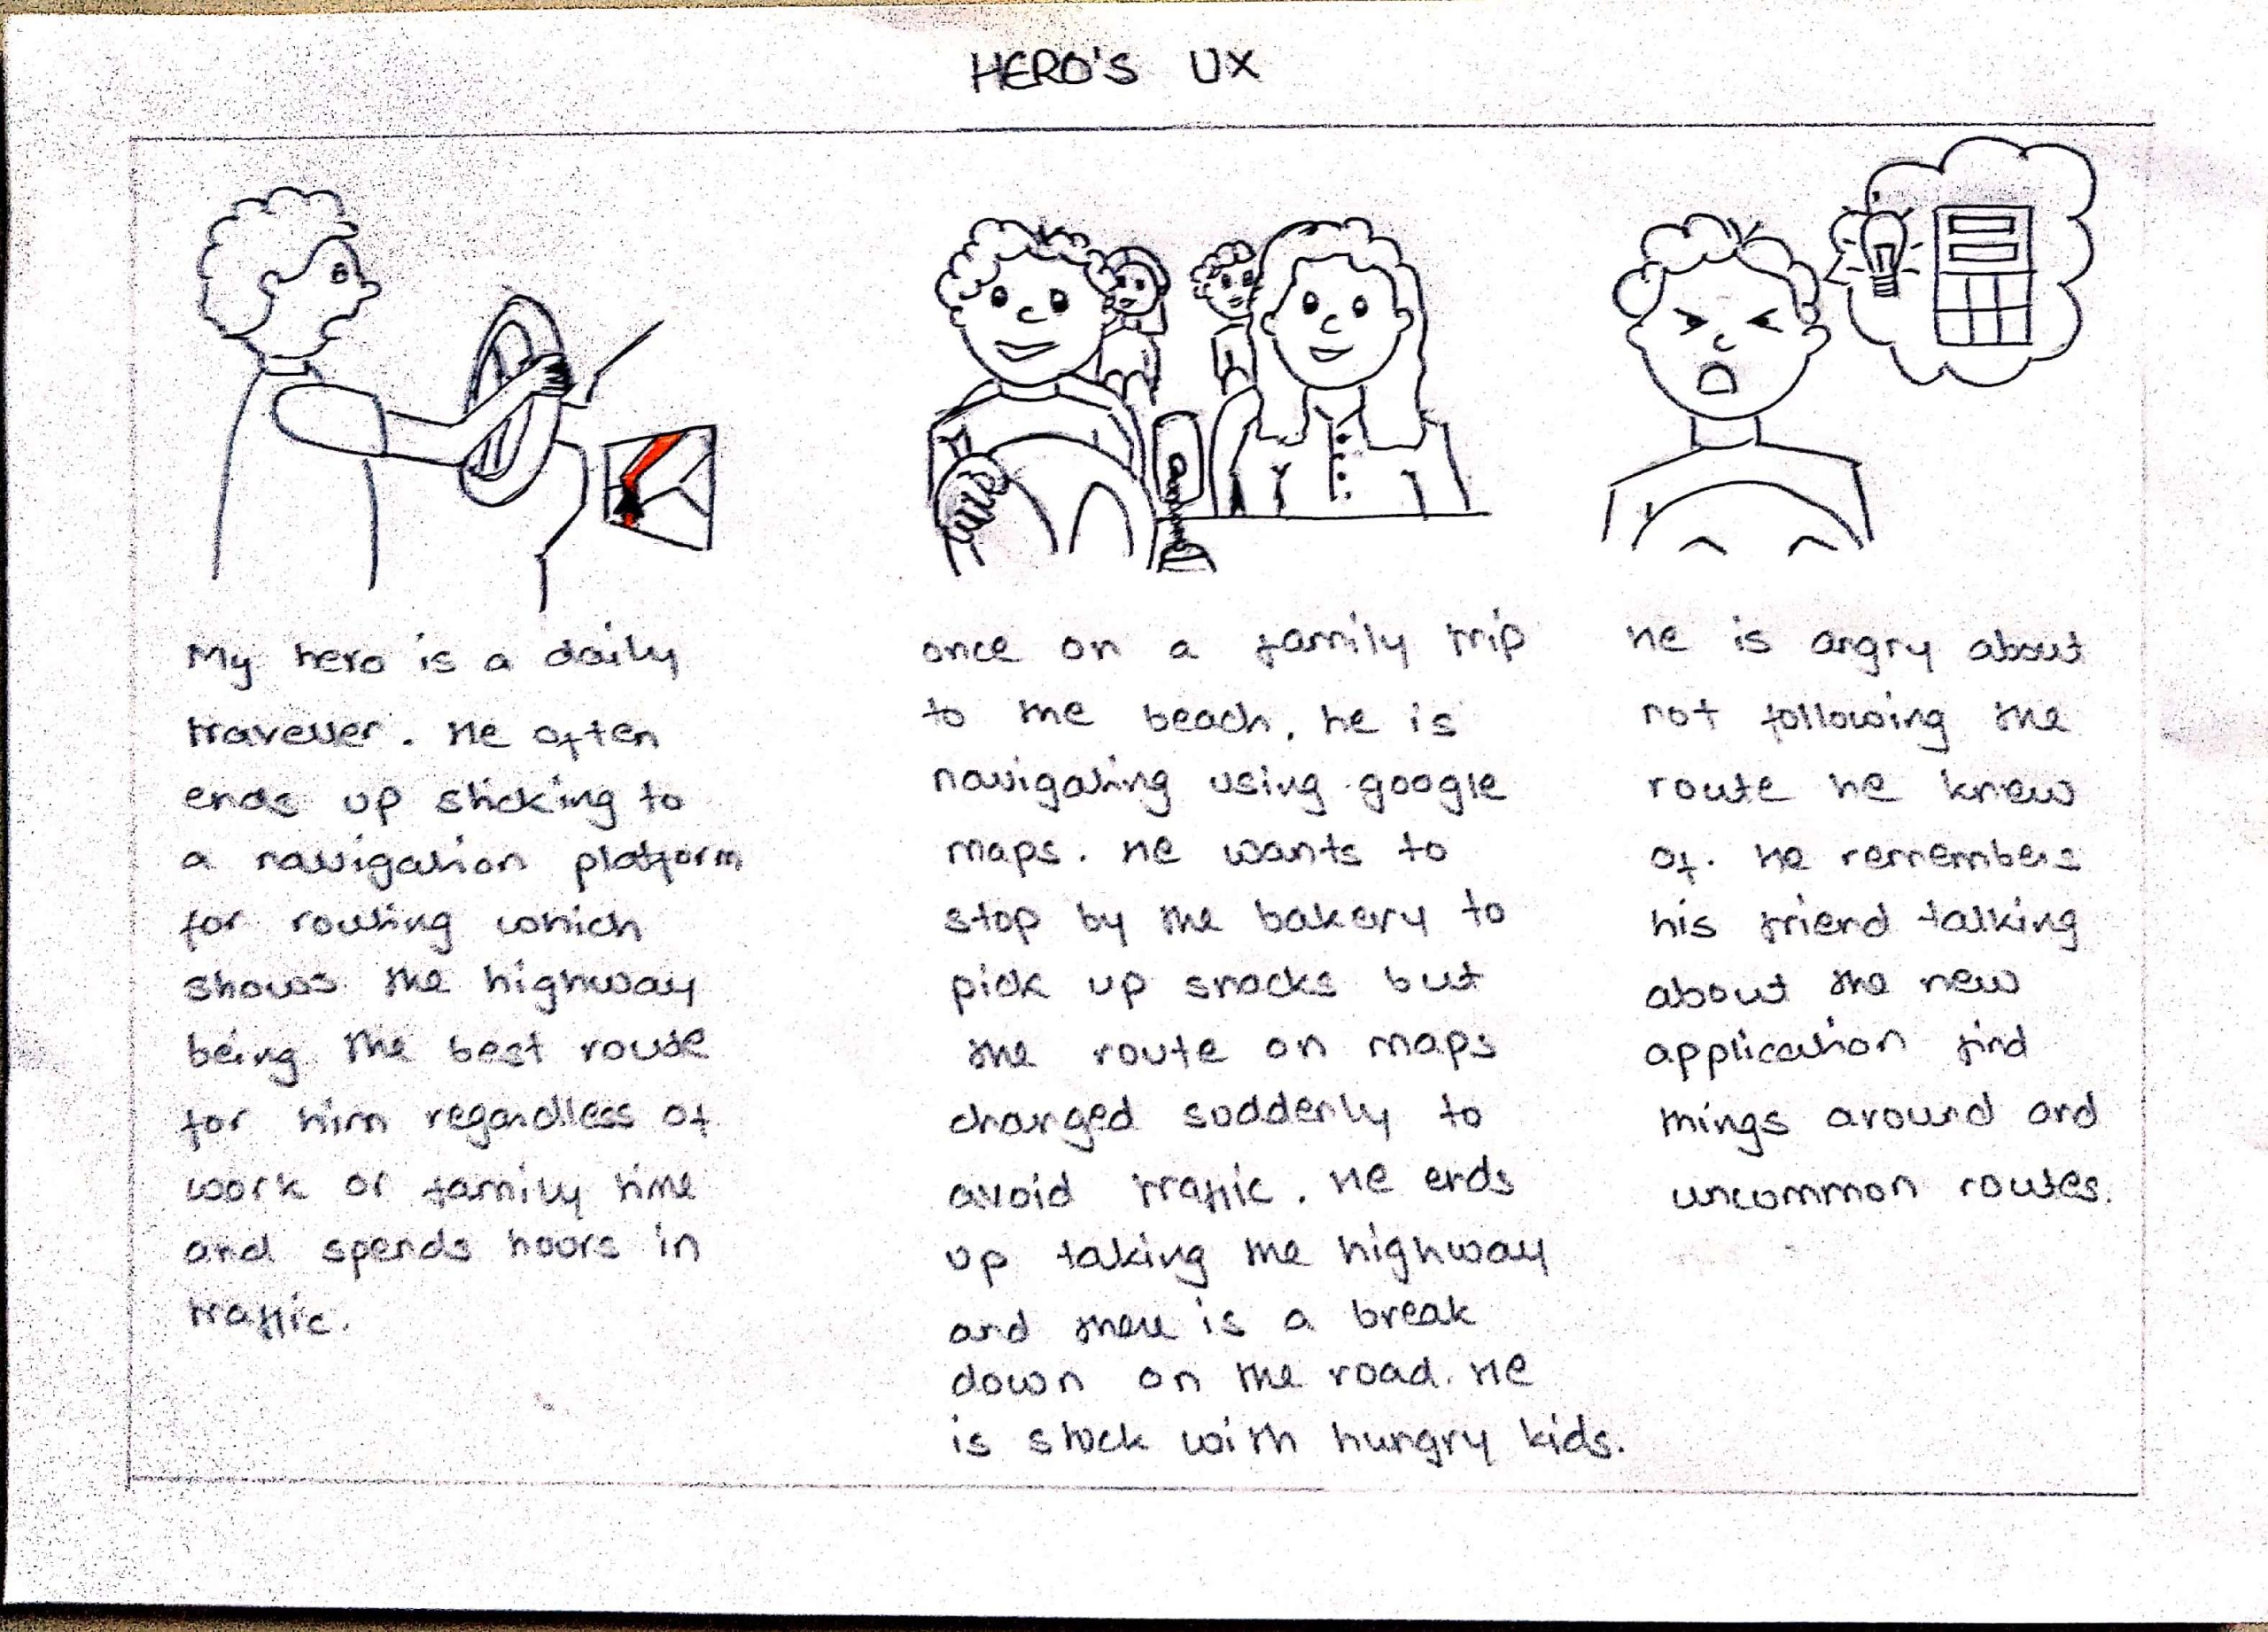 HERO'S UX
My hero is a daily
traveller. He often
ends up sticking to
a navigation platform
for routing which
shows the highway
being the best route
for him regardless of
work or family time
and spends hours in
traffic.
once on a family trip
to the beach, he is
navigating using google
maps. He wants to
stop by the bakery to
pick up snacks but
the route on maps
changed suddenly to
avoid traffic. He ends
up taking the highway
and there is a break
down on the road. He
is stuck with hungry kids.
He is angry about
not following the
route he knew
of. He remembers
his friend talking
about the new
application find
things around and
uncommon routes.